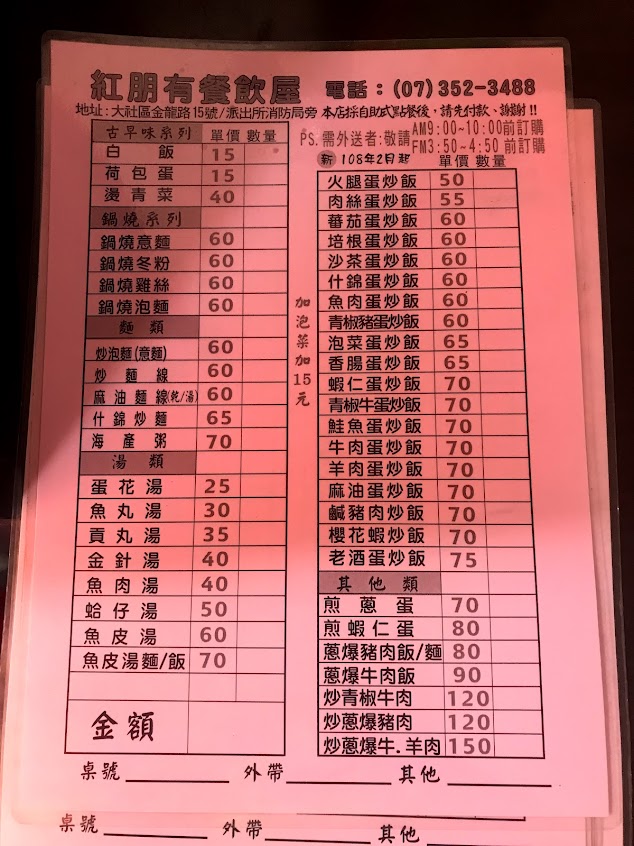 紅朋有餐飲屋 電話:(07)352-3488
地址:大社區金龍路15號/派出所消防局旁 本店採自助式點餐後,請先付款、謝謝!!
PS.需外送者:敬請 AM9:00~10:00前訂購
FM3:50~4:50前訂購
新 108年2月起
古早味系列 單價 數量
白飯 15
荷包蛋 15
燙青菜 40
鍋燒系列
鍋燒意麵 60
鍋燒冬粉 60
鍋燒雞絲 60
鍋燒泡麵 60
麵類
炒泡麵(意麵) 60
炒麵線 60
麻油麵線(乾/湯) 60
什錦炒麵 65
海產粥 70
湯類
蛋花湯 25
魚丸湯 30
貢丸湯 35
金針湯 40
魚肉湯 40
蛤仔湯 50
魚皮湯 60
魚皮湯麵/飯 70
金額
加泡菜加15元
單價 數量
火腿蛋炒飯 50
肉絲蛋炒飯 55
蕃茄蛋炒飯 60
培根蛋炒飯 60
沙茶蛋炒飯 60
什錦蛋炒飯 60
魚肉蛋炒飯 60
青椒豬蛋炒飯 60
泡菜蛋炒飯 65
香腸蛋炒飯 65
蝦仁蛋炒飯 70
青椒牛蛋炒飯 70
鮭魚蛋炒飯 70
牛肉蛋炒飯 70
羊肉蛋炒飯 70
麻油蛋炒飯 70
鹹豬肉炒飯 70
櫻花蝦炒飯 70
老酒蛋炒飯 75
其他類
煎蔥蛋 70
煎蝦仁蛋 80
蔥爆豬肉飯/麵 80
蔥爆牛肉飯 90
炒青椒牛肉 120
炒蔥爆豬肉 120
炒蔥爆牛.羊肉 150
桌號 外帶 其他
桌號 外帶 其他